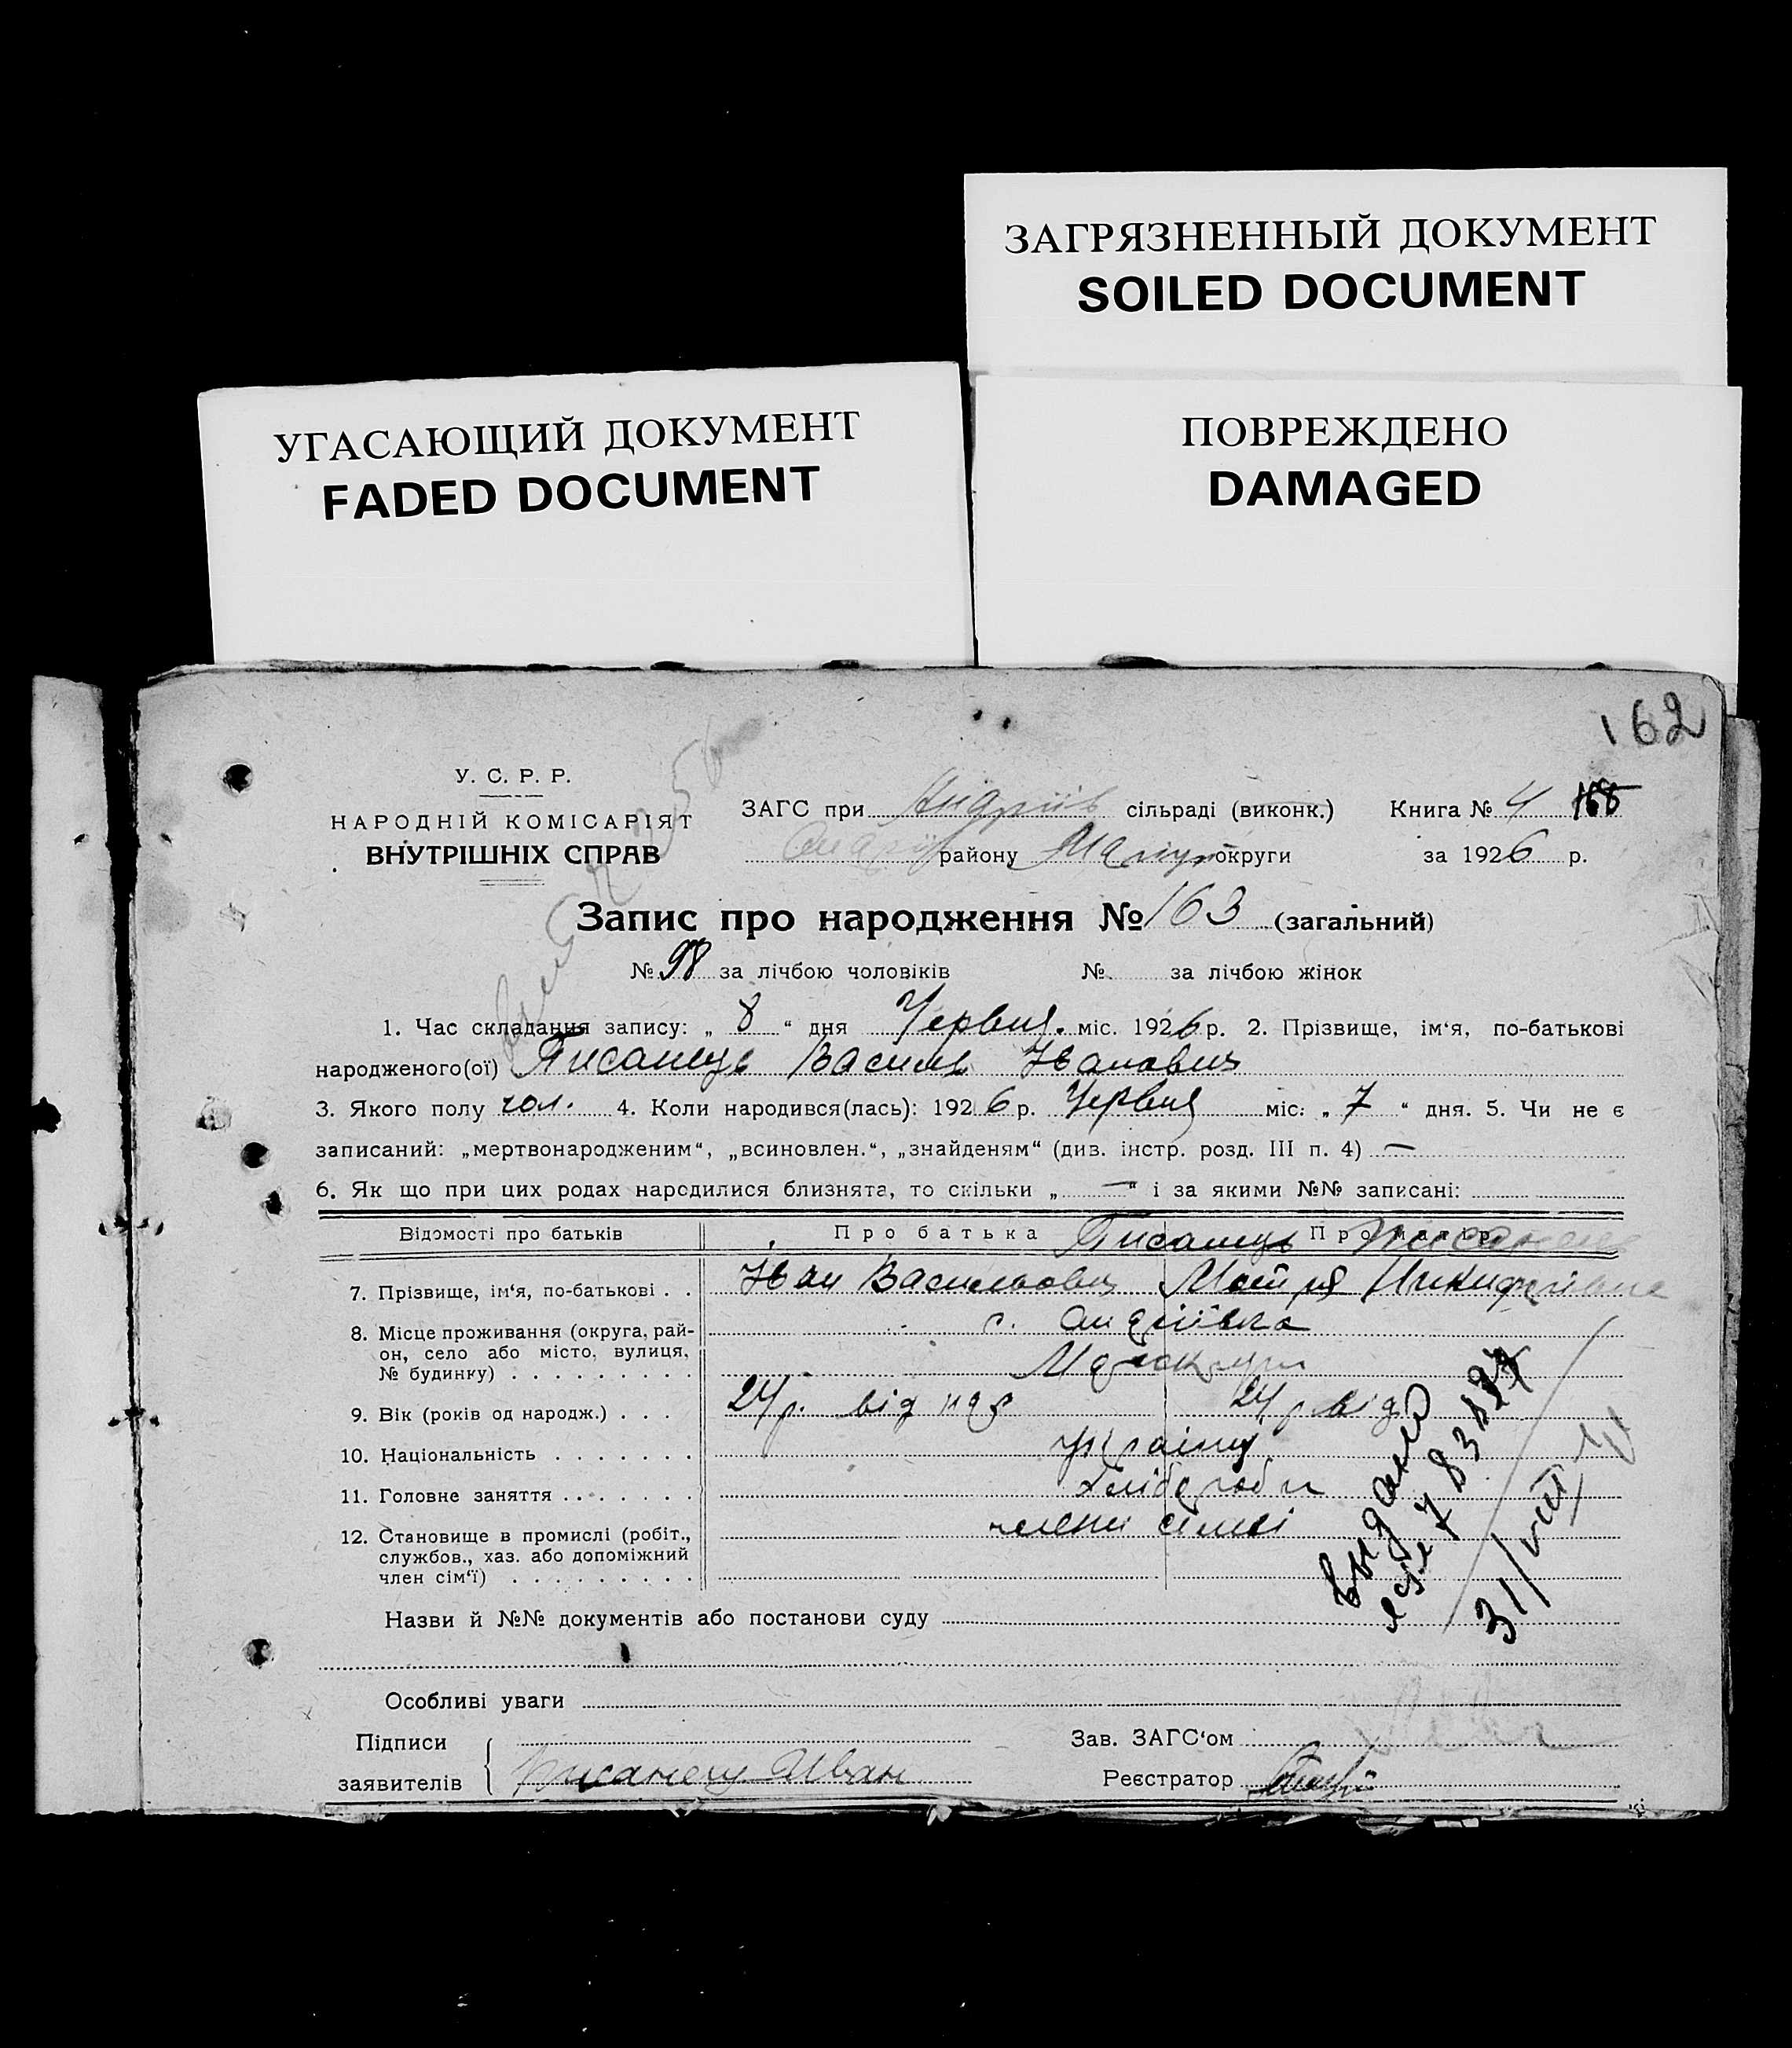 ЗАГРЯЗНЕННЫЙ ДОКУМЕНТ
SOILED DOCUMENT
УГАСАЮЩИЙ ДОКУМЕНТ
FADED DOCUMENT
ПОВРЕЖДЕНО
DAMAGED
162
У. С. Р. Р.
НАРОДНІЙ КОМІСАРІЯТ
ВНУТРІШНІХ СПРАВ
ЗАГС при Андріїв сільраді (виконк.) Книга № 4 168
району Маріуп округи за 1926 р.
Запис про народження № 163 (загальний)
№ 98 за лічбою чоловіків № за лічбою жінок
1. Час складання запису: „ 8 “ дня Червня міс. 1926 р. 2. Прізвище, ім‘я, по-батькові
народженого(ої) Писанець Василь Іванович
3. Якого полу чол. 4. Коли народився(лась): 1926 р. Червня міс. „ 7 “ дня. 5. Чи не є
записаний: „мертвонародженим“, „всиновлен.“, „знайденям“ (див. інстр. розд. III п. 4) —
6. Як що при цих родах народилися близнята, то скільки „ — “ і за якими №№ записані:
Відомості про батьків Про батька Писанець Про матір
7. Прізвище, ім‘я, по-батькові . . Іван Васильович Мотря Никифорівна
8. Місце проживання (округа, рай- с. Андріївка
он, село або місто, вулиця,
№ будинку) . . . . . . . . .
9. Вік (років од народж.) . . . 24 р. від нар 24 р від
10. Національність . . . . . . . україн
11. Головне заняття . . . . . . . хлібороби
12. Становище в промислі (робіт., члени сімї
службов., хаз. або допоміжний
член сім‘ї) . . . . . . . . .
выдано
31/VIII
Назви й №№ документів або постанови суду
Особливі уваги
Підписи
заявителів Писанець Иван
Зав. ЗАГС‘ом
Реєстратор